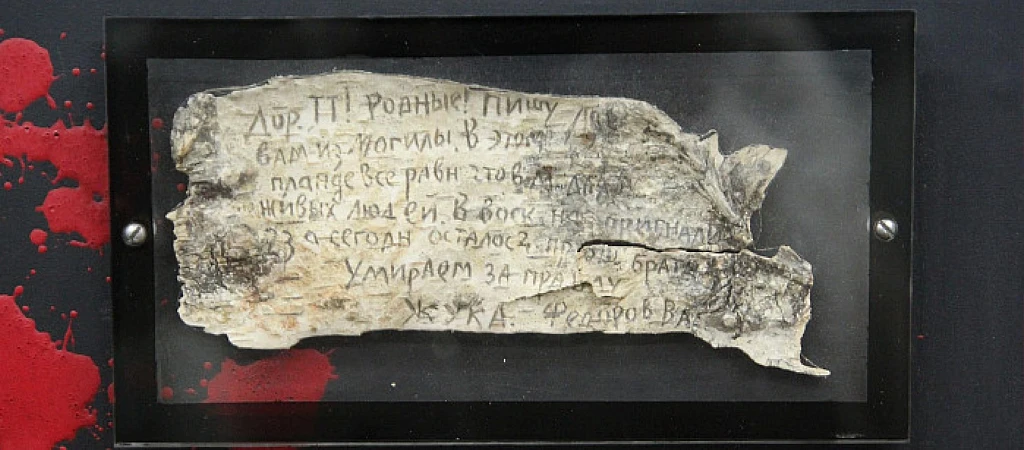 Дор. ТТ! Родные! Пишу
вам из могилы. В этом
планде все равн это в
живых людей. В воск. нас пригнали
23 а сегодн осталос 2. прощ. братья
Умираем за правду
Жук А. - Федоров ВА